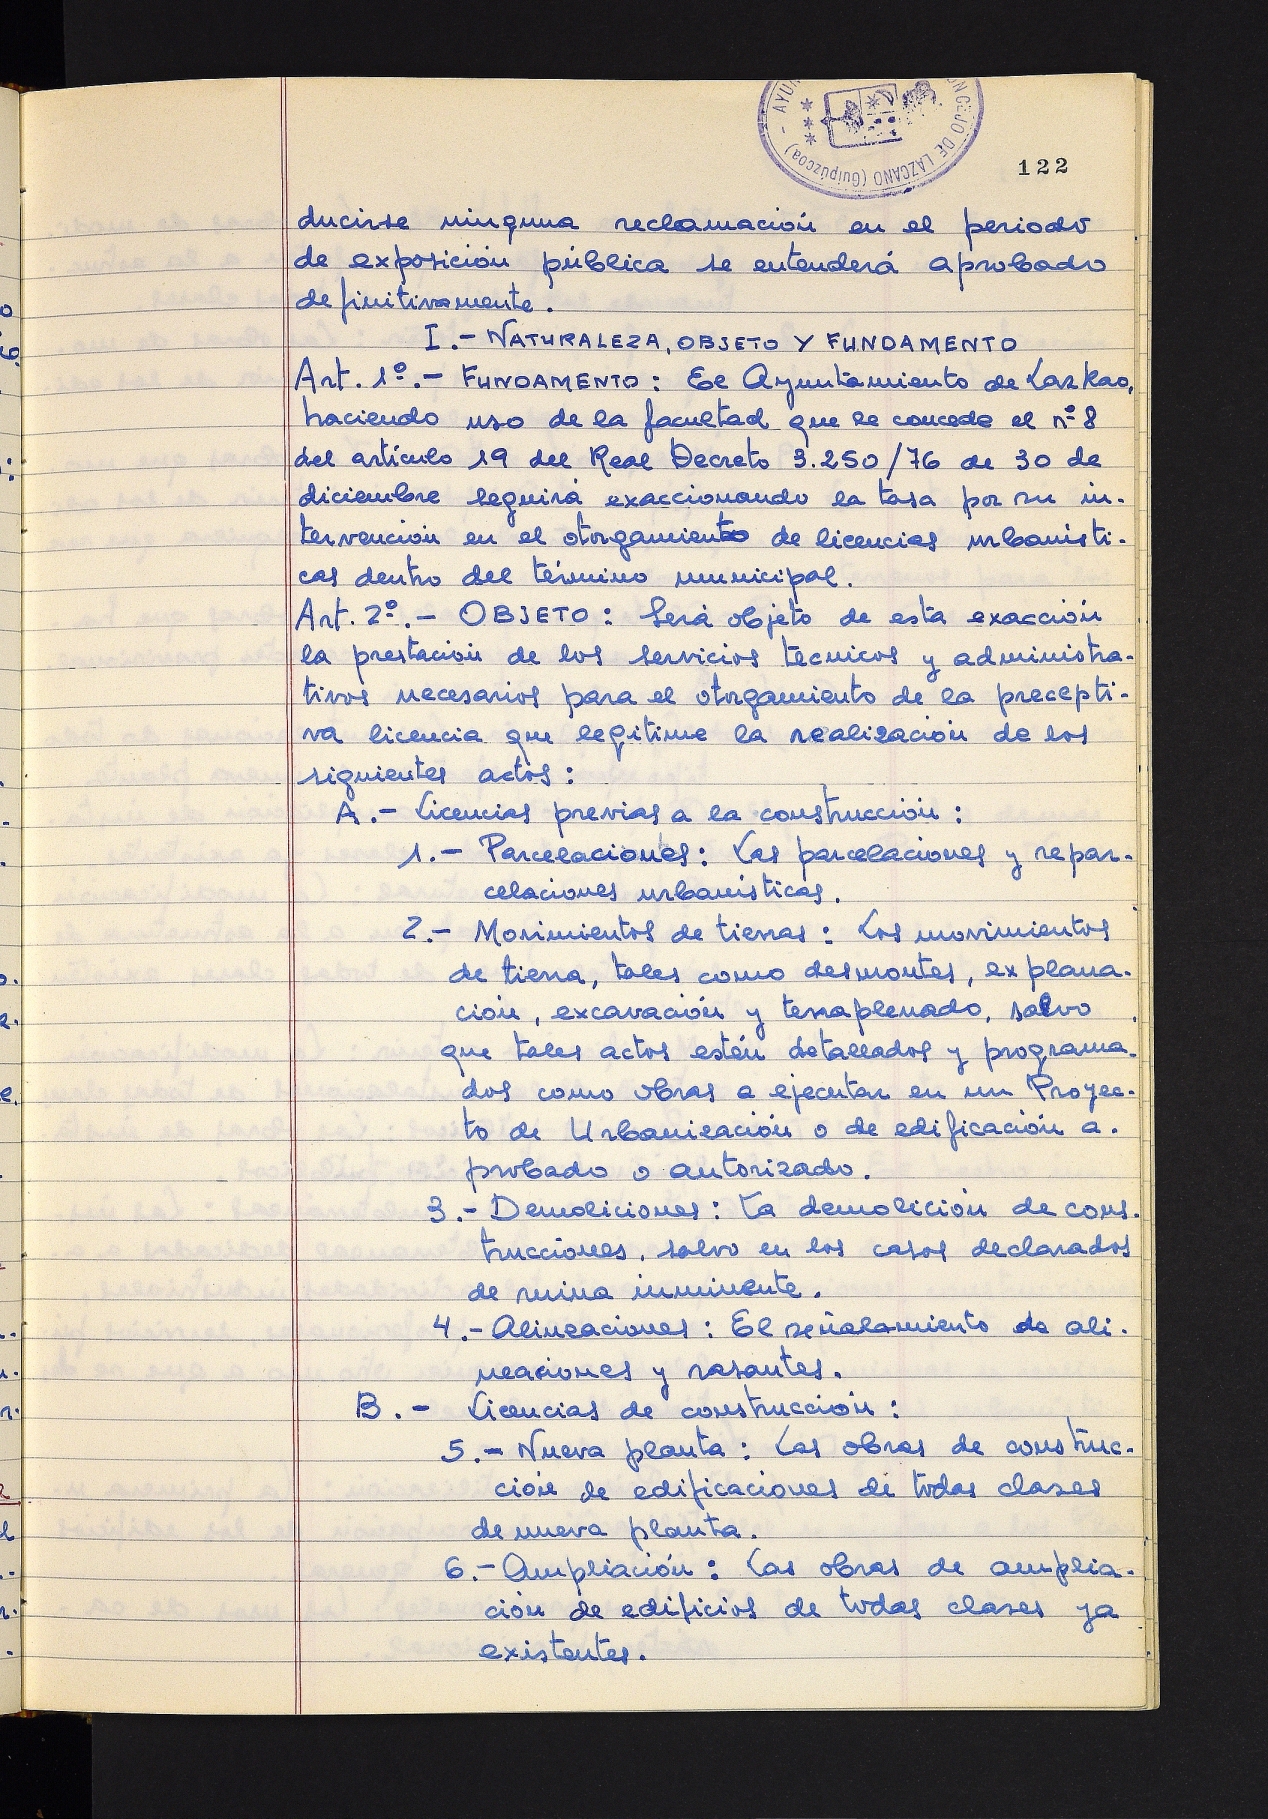 AYUN
CONCEJO DE LAZCANO (Guipúzcoa) -
122
ducirse ninguna reclamación en el periodo
de exposición pública se entenderá aprobado
definitivamente.
I.- NATURALEZA, OBJETO Y FUNDAMENTO
Art. 1º.- FUNDAMENTO: El Ayuntamiento de Lazkao,
haciendo uso de la facultad que le concede el nº 8
del artículo 19 del Real Decreto 3.250/76 de 30 de
diciembre seguirá exaccionando la tasa por su in-
tervención en el otorgamiento de licencias urbanísti-
cas dentro del término municipal.
Art. 2º.- OBJETO: Será objeto de esta exacción
la prestación de los servicios técnicos y administra-
tivos necesarios para el otorgamiento de la precepti-
va licencia que legitime la realización de los
siguientes actos:
A.- Licencias previas a la construcción:
1.- Parcelaciones: Las parcelaciones y repar-
celaciones urbanísticas.
2.- Movimientos de tierras: Los movimientos
de tierra, tales como desmontes, explana-
ción, excavación y terraplenado, salvo
que tales actos estén detallados y programa-
dos como obras a ejecutar en un Proyec-
to de Urbanización o de edificación a-
probado o autorizado.
3.- Demoliciones: La demolición de cons-
trucciones, salvo en los casos declarados
de ruina inminente.
4.- Alineaciones: El señalamiento de ali-
neaciones y rasantes.
B.- Licencias de construcción:
5.- Nueva planta: Las obras de construc-
ción de edificaciones de todas clases
de nueva planta.
6.- Ampliación: Las obras de amplia-
ción de edificios de todas clases ya
existentes.